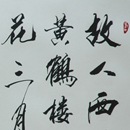 故人西
黄鹤楼
花三月